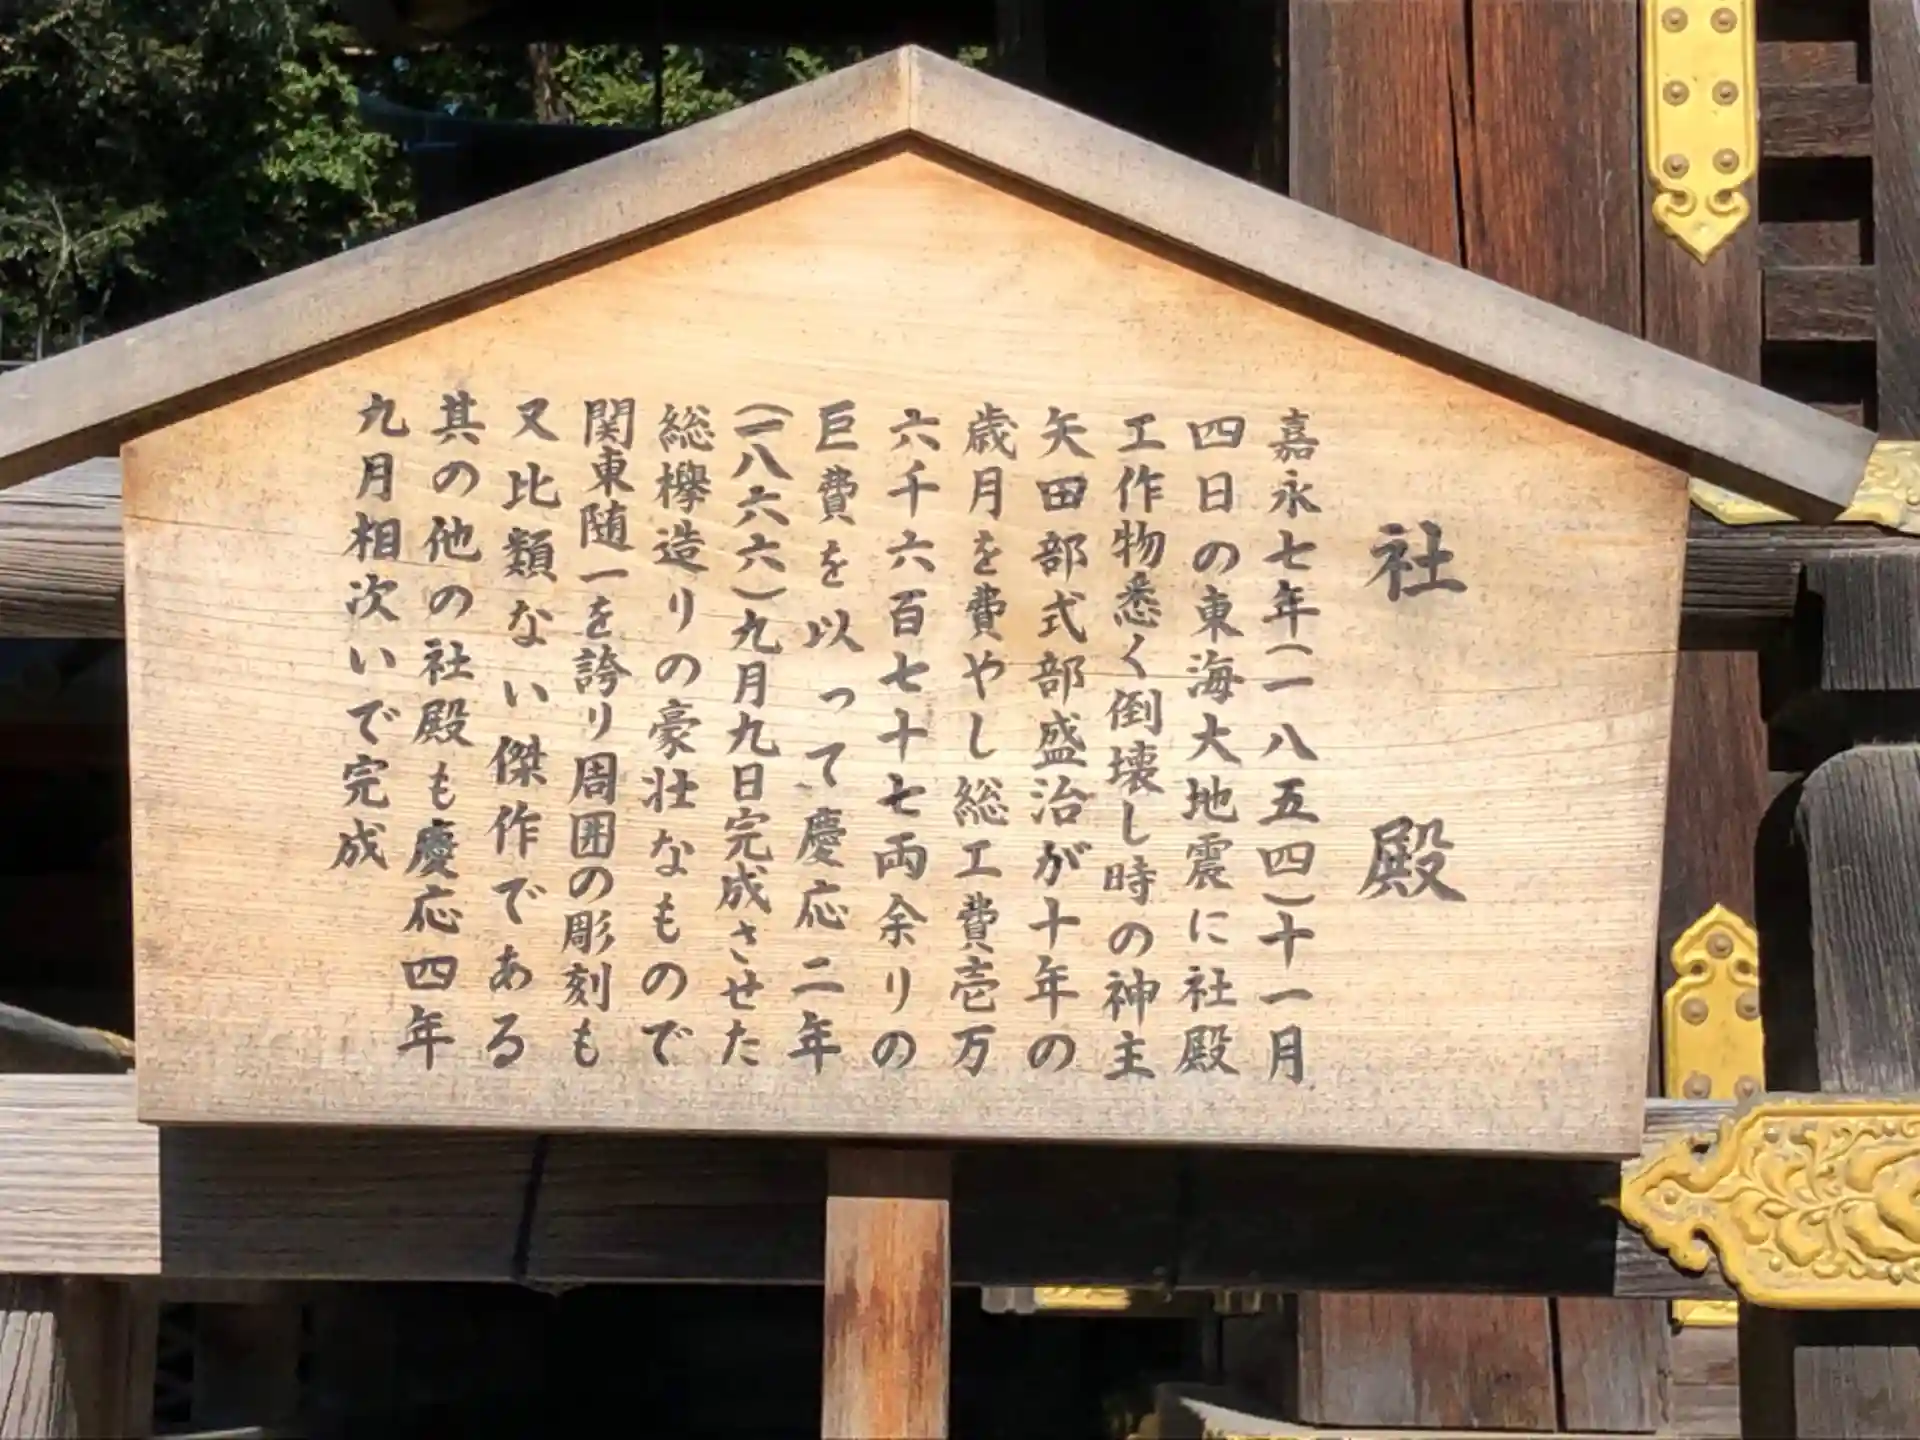 社殿
嘉永七年(一八五四)十一月
四日の東海大地震に社殿
工作物悉く倒壊し時の神主
矢田部式部盛治が十年の
歳月を費やし総工費壱万
六千六百七十七両余りの
巨費を以って慶応二年
(一八六六)九月九日完成させた
総欅造りの豪壮なもので
関東随一を誇り周囲の彫刻も
又比類ない傑作である
其の他の社殿も慶応四年
九月相次いで完成